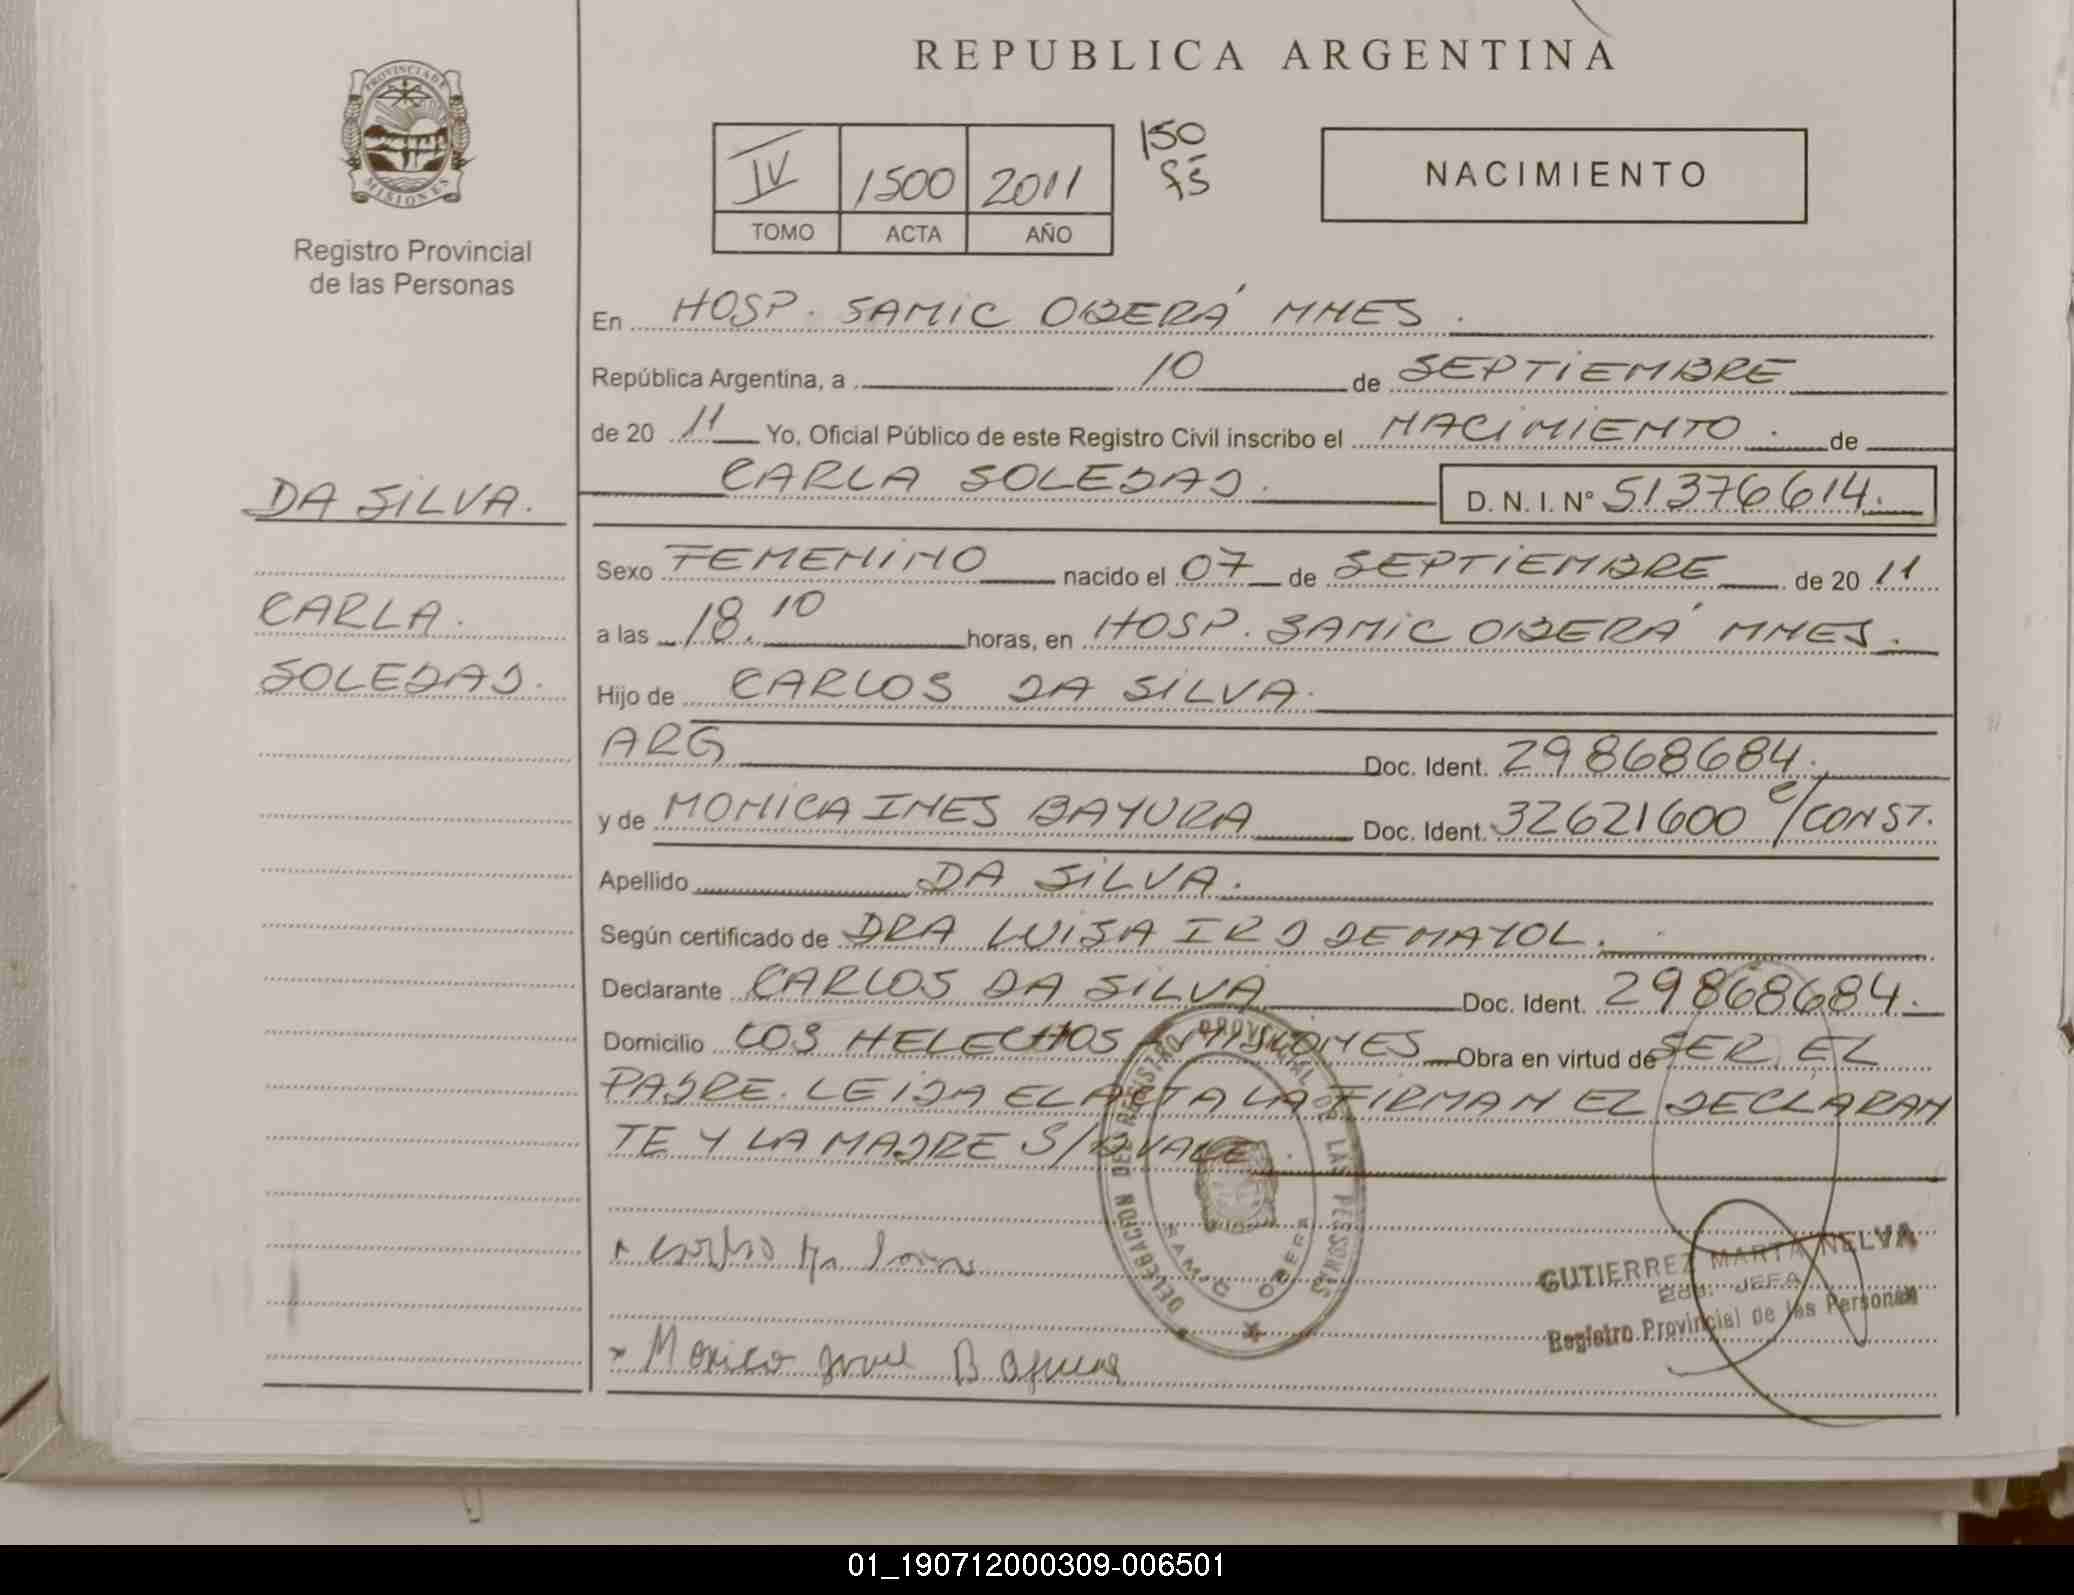 REPUBLICA ARGENTINA
PROVINCIA DE
MISIONES
Registro Provincial
de las Personas
IV 1500 2011
TOMO ACTA AÑO
150
NACIMIENTO
En HOSP. SAMIC OBERÁ MNES.
República Argentina, a 10 de SEPTIEMBRE
de 20 11 Yo, Oficial Público de este Registro Civil inscribo el NACIMIENTO. de
CARLA SOLEDAD. D. N. I. N° 51376614.
DA SILVA.
CARLA.
SOLEDAD.
Sexo FEMENINO nacido el 07 de SEPTIEMBRE de 20 11
a las 18.10 horas, en HOSP. SAMIC OBERÁ MNES.
Hijo de CARLOS DA SILVA.
ARG Doc. Ident. 29868684.
y de MONICA INES BAYURA Doc. Ident. 32621600 c/CONST.
Apellido DA SILVA.
Según certificado de DRA LUISA IRD DEMAYOL.
Declarante CARLOS DA SILVA Doc. Ident. 29868684.
Domicilio LOS HELECHOS MISIONES Obra en virtud de SER EL
PADRE. LEIDA EL ACTA LA FIRMAN EL DECLARAN
TE Y LA MADRE S/ VALE.
DELEGACION DEL REGISTRO PROVINCIAL DE LAS PERSONAS
SAMIC OBERA
GUTIERREZ MARTA NELVA
JEFA
Registro Provincial de las Personas
01_190712000309-006501